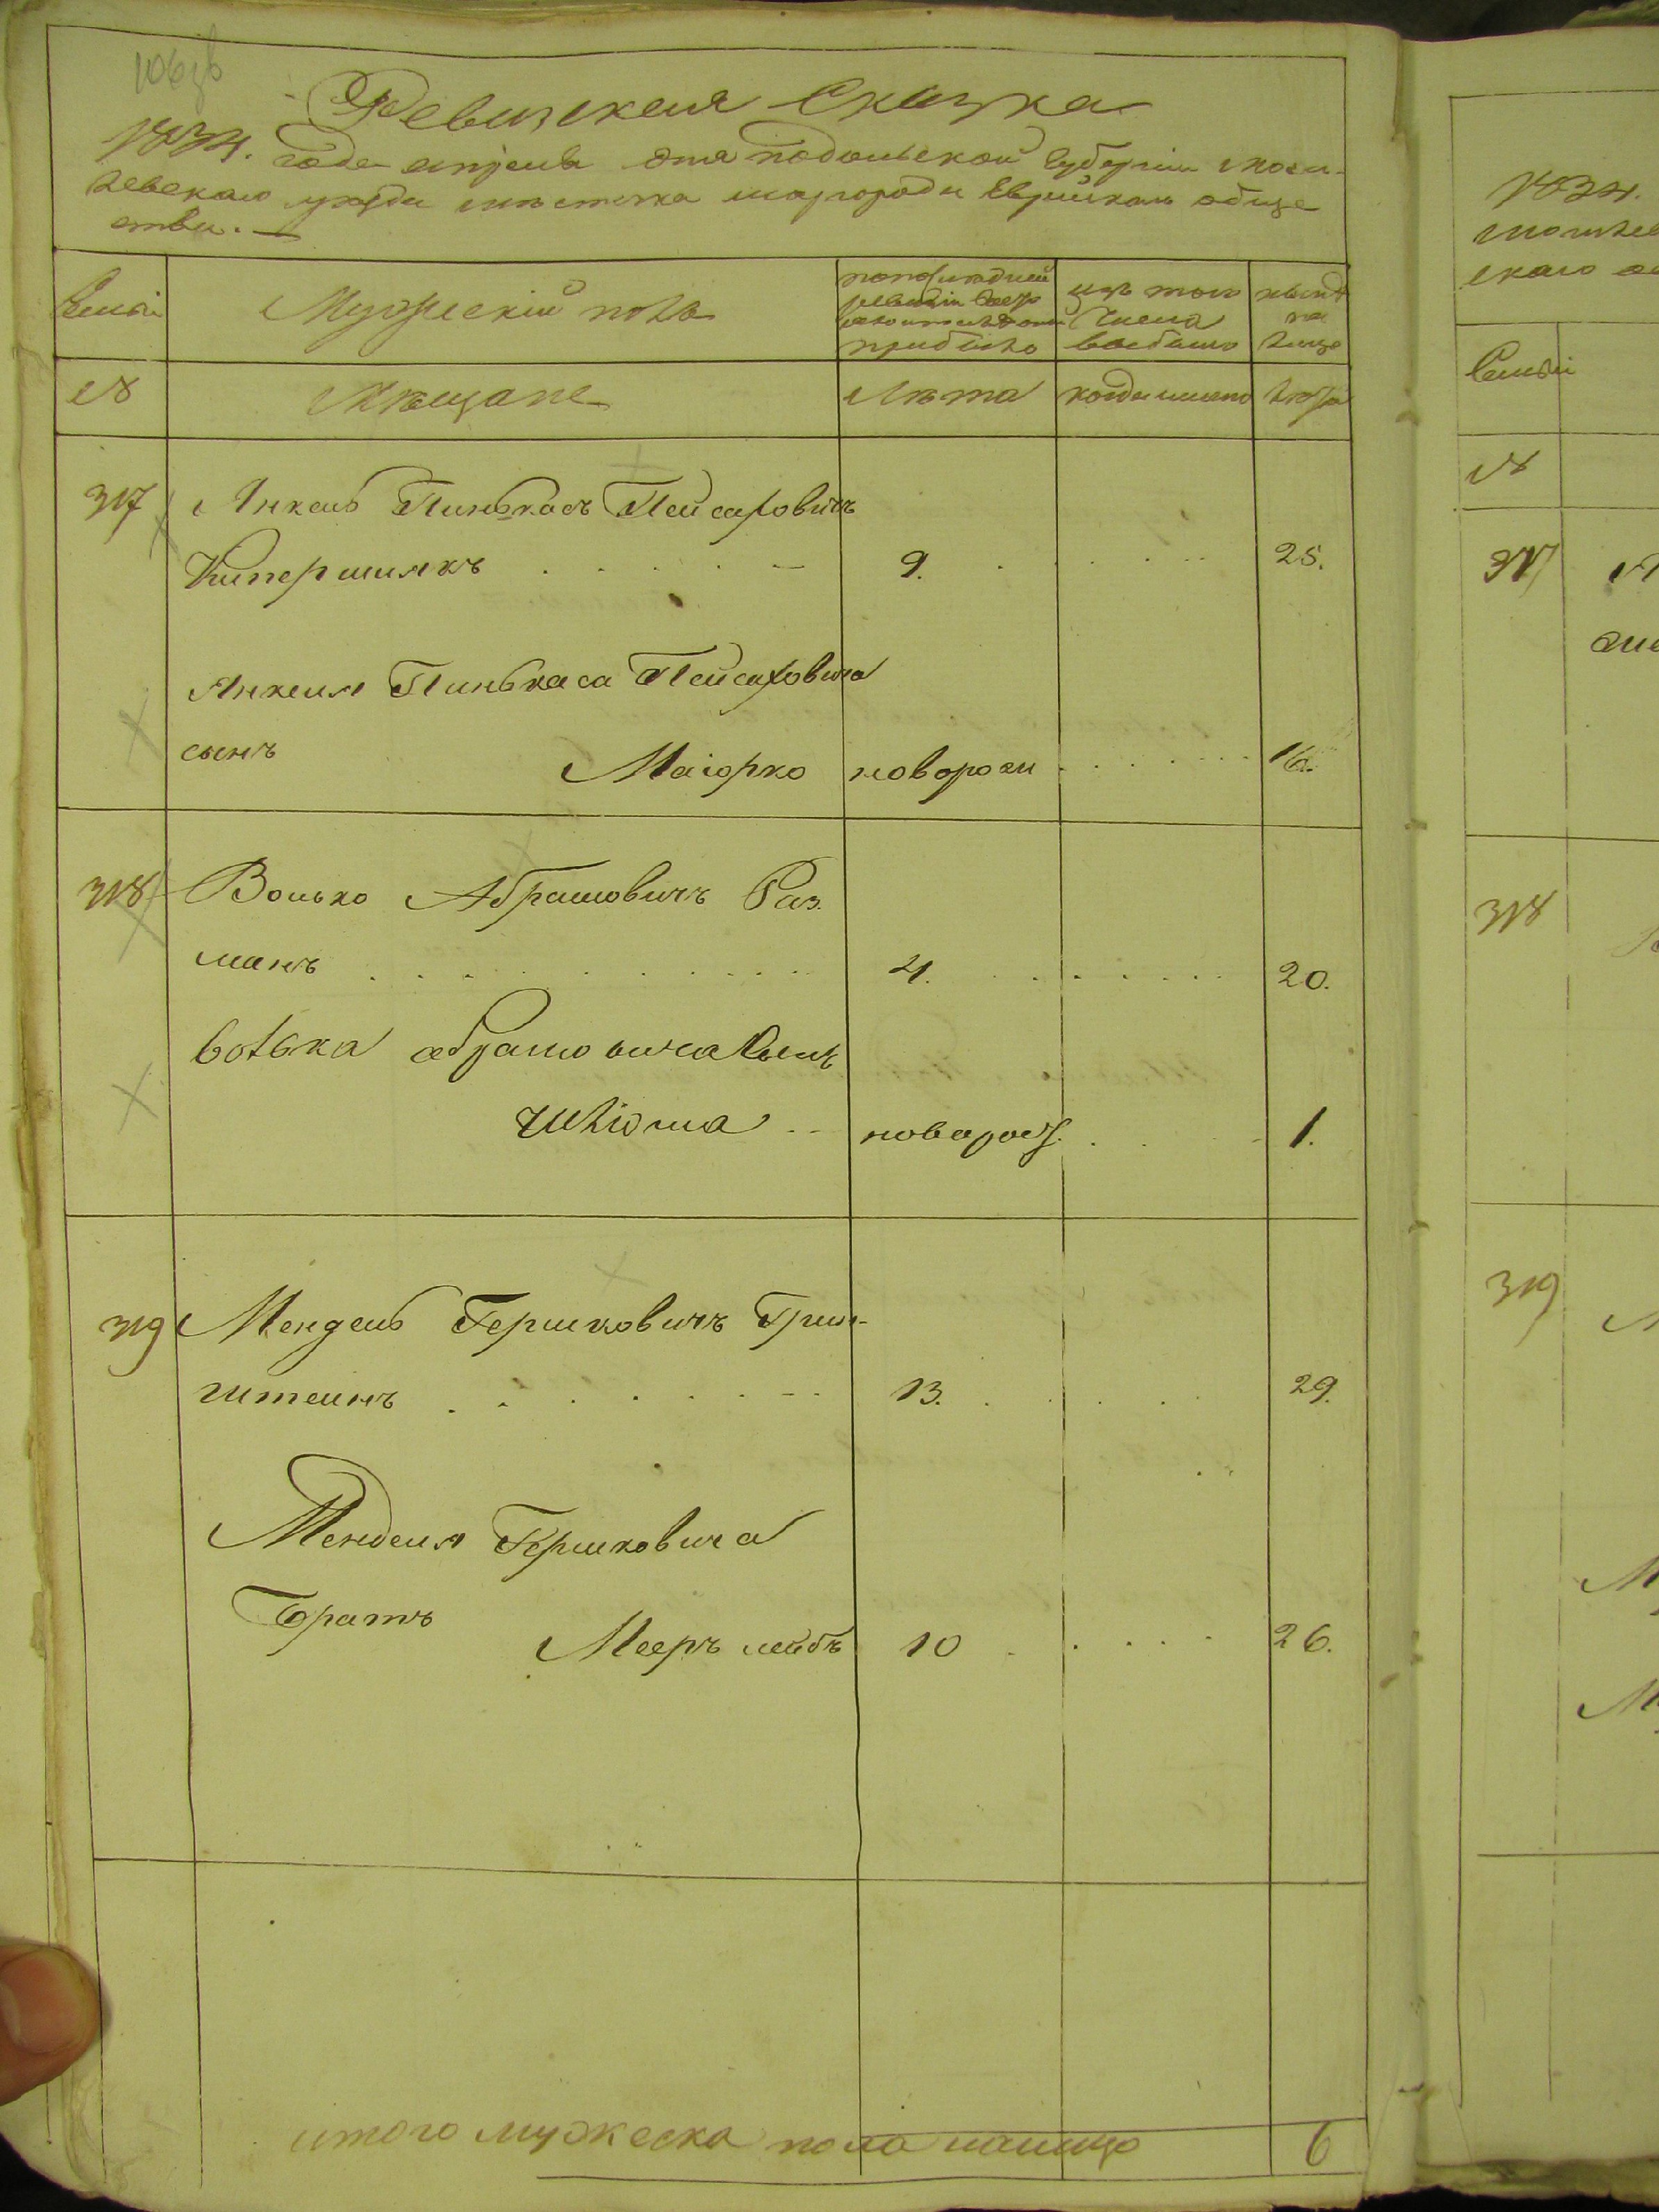 Ревизская Сказка
1834. года апреля дня подольской губернии моги-
левскаго уезда местечка шаргорода Еврейскаго обще
ства. —
Семьи
Мужескій полъ
по последней ревизіи состояло и после того прибыло
изъ того числа выбыло
ныне на лицо
№
Мещане
Лета
когда именно
лета
317
Янкель Пинькасъ Пейсаховичъ
Купершмякъ
9.
25.
Янкеля Пинькаса Пейсаховича
сынъ
Маіорко
новорож
318
Волько Абрамовичъ Раз
манъ
4.
20.
волька абрамовича сынъ
Шліома
новорож.
1.
319
Мендель Гершковичъ Грин-
штеинъ
13.
29.
Менделя Гершковича
Братъ
Мееръ лейбъ
10
26.
итого мужеска пола налицо
6
1834.
скаго
Семьи
№
317
318
319